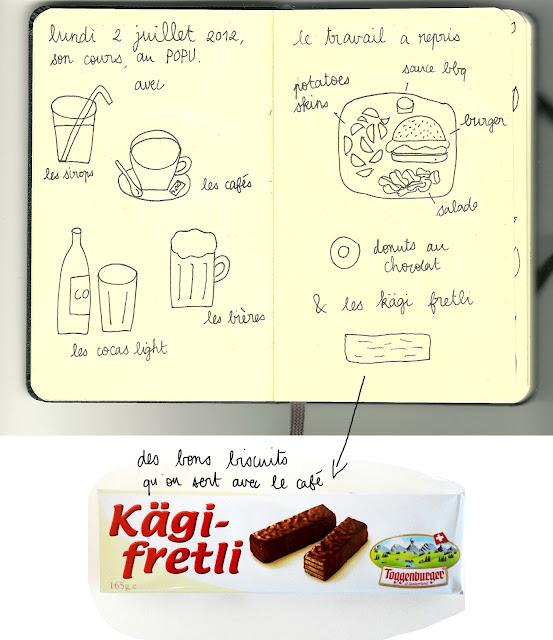 lundi 2 juillet 2012,
le travail a repris
son cours, au POPU.
avec
les sirops
les cafés
CO
les cocas light
les bières
potatoes
skins
sauce bbq
burger
salade
donuts au
chocolat
& les kägi fretli
des bons biscuits
qu'on sert avec le café
Kägi-
fretli
165g e
Toggenburger